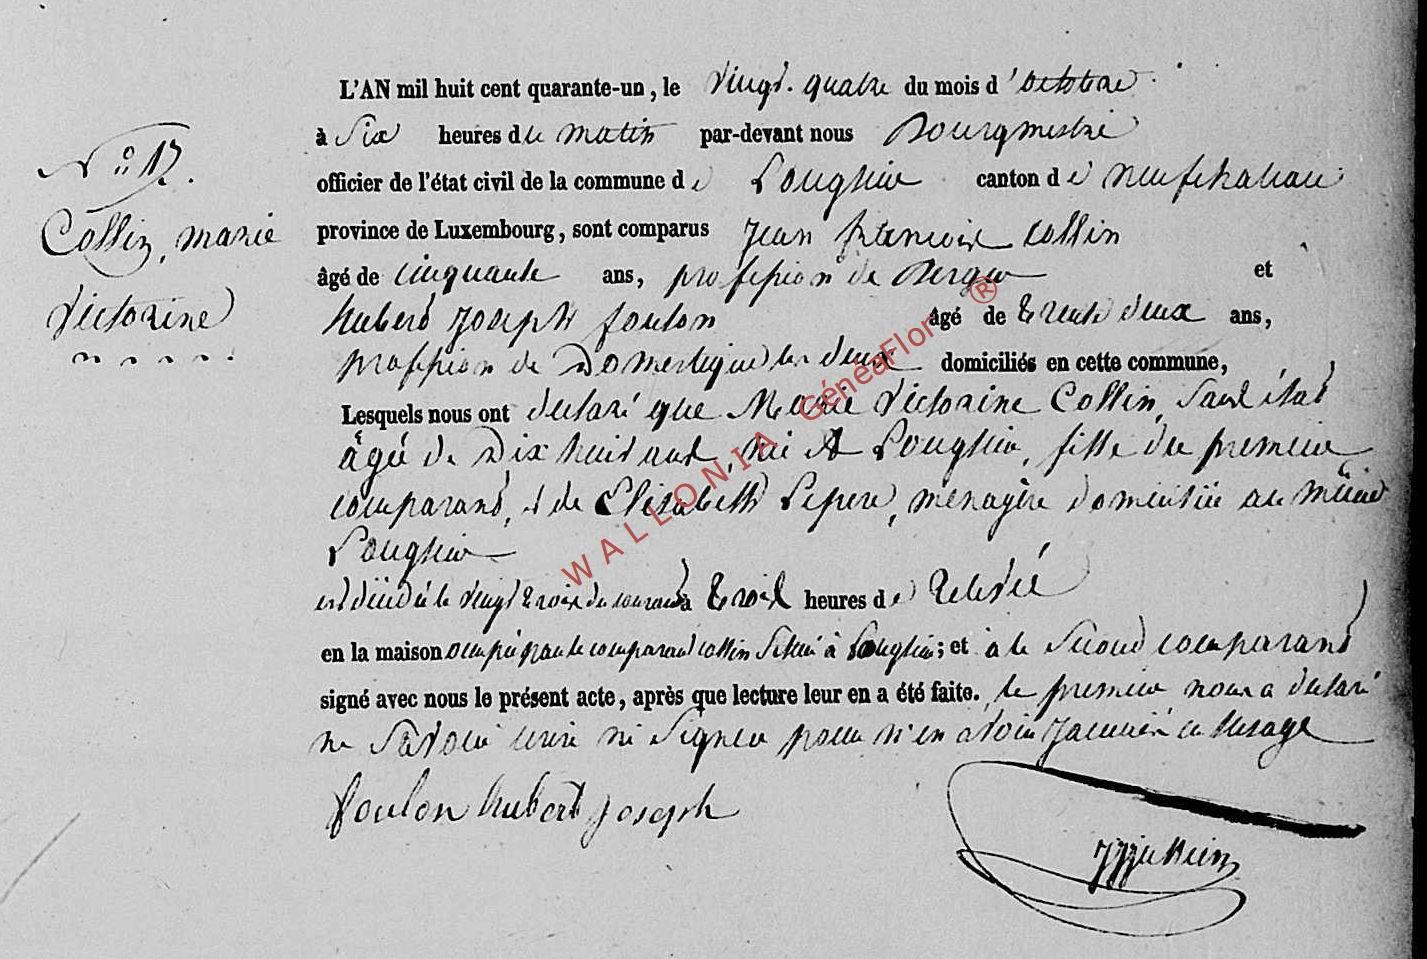 N° 17.
Collin, marie
Victorine
L'AN mil huit cent quarante-un, le vingt-quatre du mois d'octobre
à Six heures du matin par-devant nous Bourgmestre
officier de l'état civil de la commune de Longlier canton de neufchateau
province de Luxembourg, sont comparus Jean francois collin
âgé de cinquante ans, profession de Berger et
hubert Joseph foulon âgé de trente deux ans,
profession de Domestique les deux domiciliés en cette commune,
Lesquels nous ont declaré que Marie Victorine Collin, sans état
agée de Dix huit ans, née à Longlier, fille du premier
comparant, et de Elisabeth Lepere, menagère domiciliée au même
Longlier
est décédée le vingt trois du courant à trois heures de relevée
en la maison occupée par le comparant collin située à Longlier; et a le second comparant
signé avec nous le présent acte, après que lecture leur en a été faite. le premier nous a declaré
ne savoir ecrire ni signer pour n'en avoir jamais eu l'usage
foulon hubert joseph
WALLONIA GénéaFlor ®